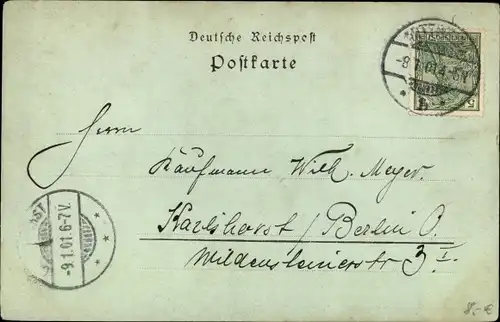 Deutsche Reichspost
Postkarte
-8.1.01.4-5V.
5
Herrn
Kaufmann Wilh. Meyer.
Karlshorst / Berlin O.
Wildensteinerstr 3 I.
-9.1.01.6-7V.
8,-€